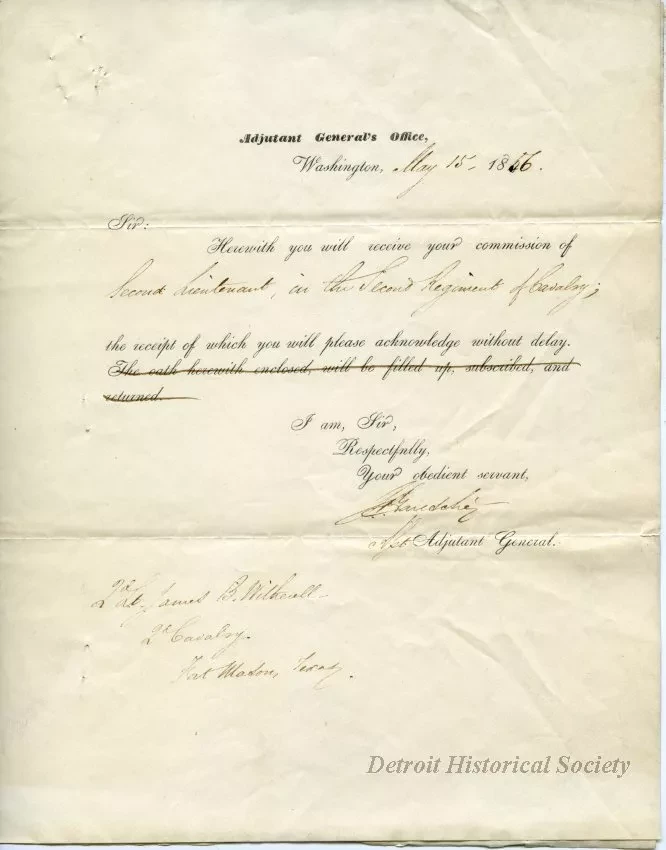 Adjutant General's Office,
Washington, May 15, 1856.
Sir:
Herewith you will receive your commission of
Second Lieutenant, in the Second Regiment of Cavalry;
the receipt of which you will please acknowledge without delay.
The oath herewith enclosed, will be filled up, subscribed, and
returned.
I am, Sir,
Respectfully,
Your obedient servant,
Adjutant General.
2d Lt. James B. Witherell
2d Cavalry.
Fort Mason, Texas.
Detroit Historical Society